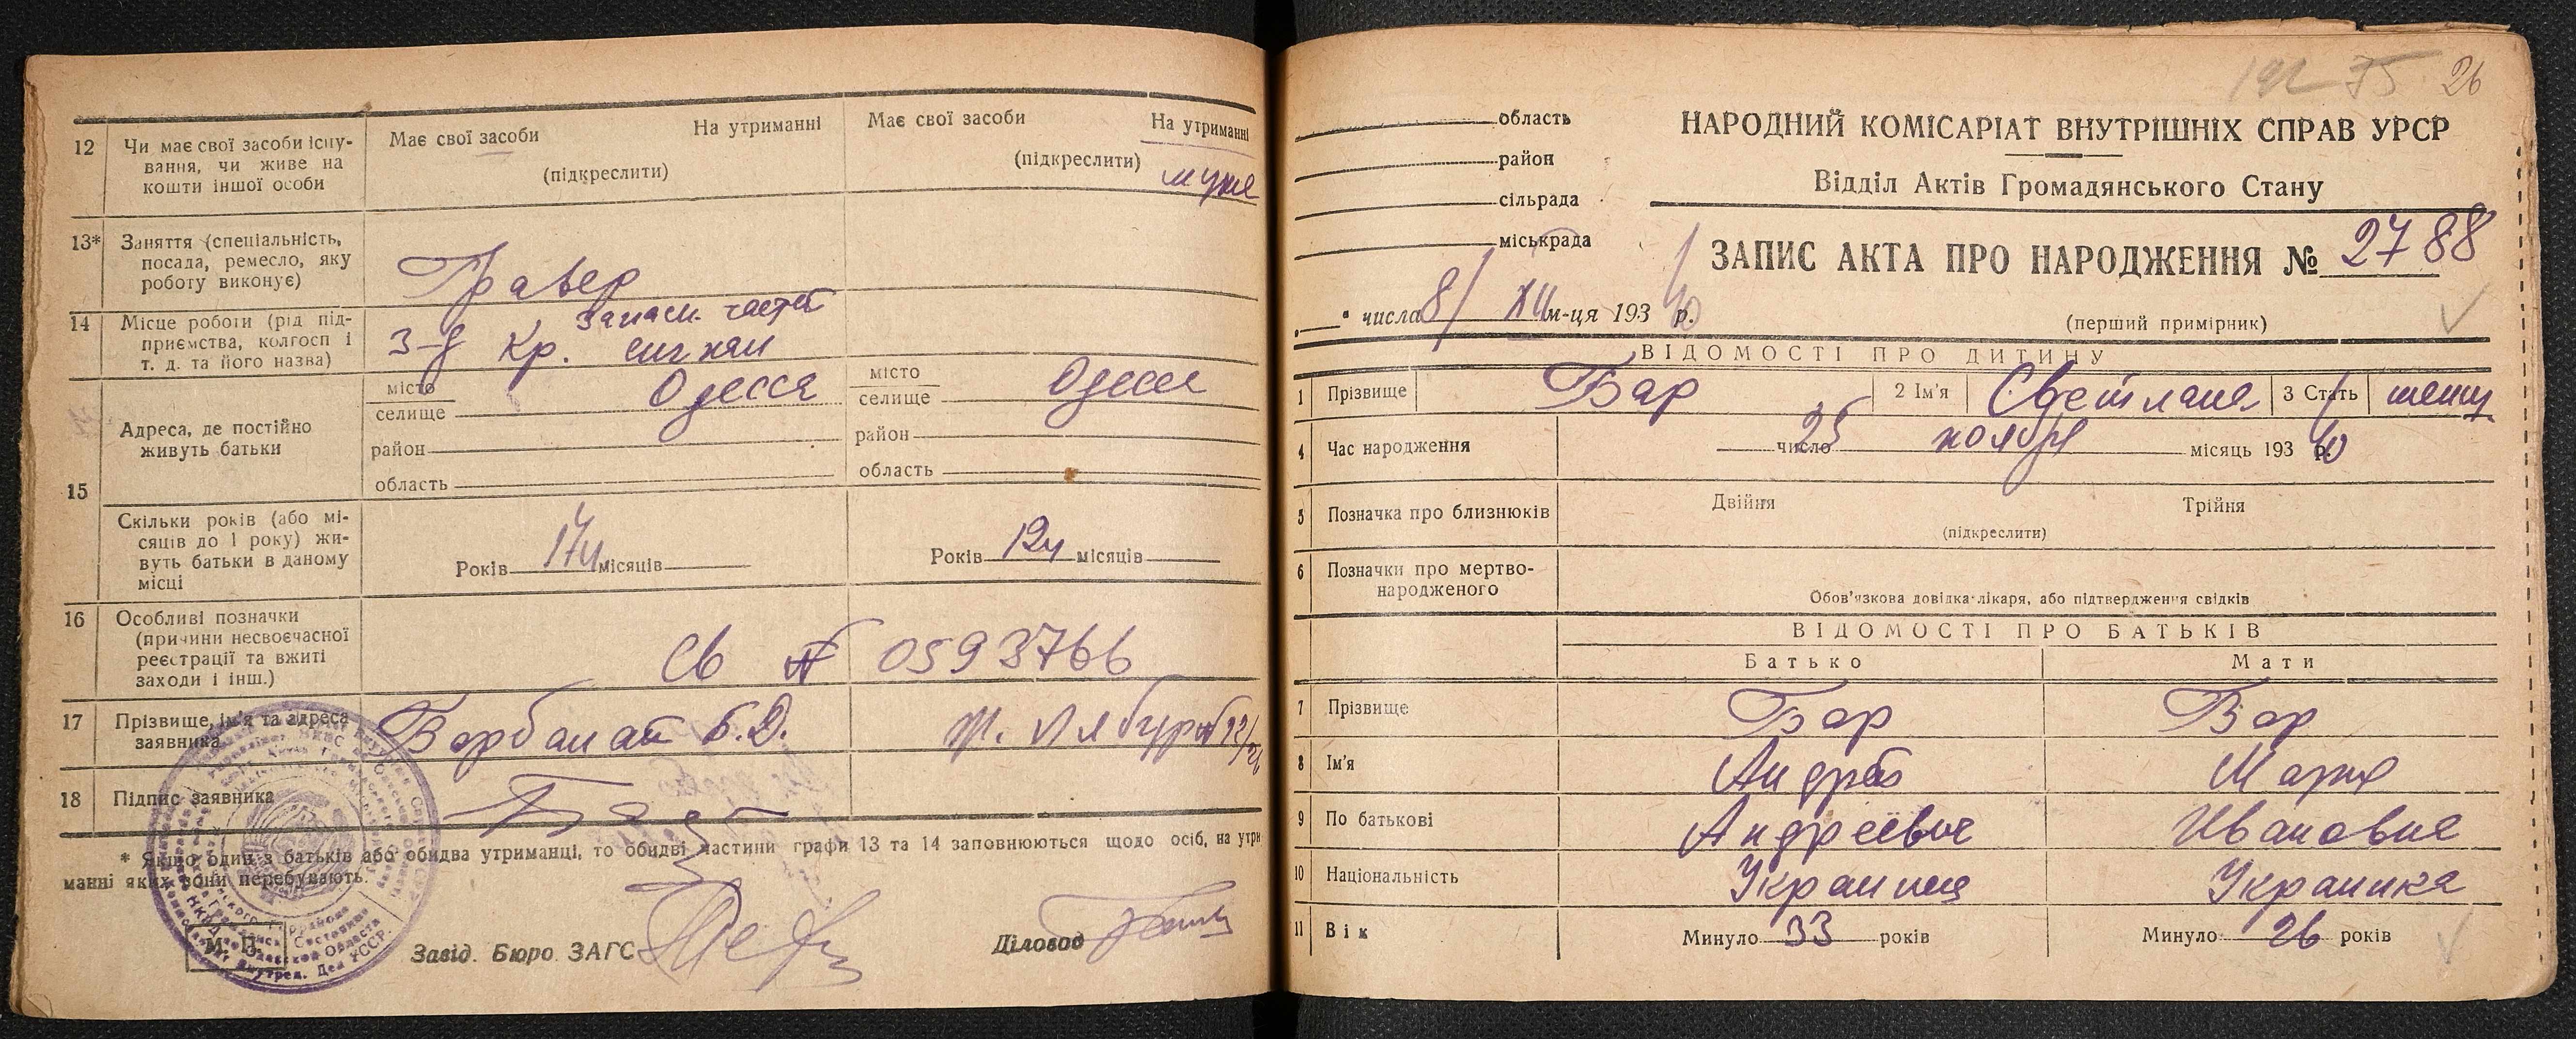 12
Чи має свої засоби існу-
вання, чи живе на
кошти іншої особи
Має свої засоби
На утриманні
(підкреслити)
Має свої засоби
На утриманні
(підкреслити)
мужа
13*
Заняття (спеціальність,
посада, ремесло, яку
роботу виконує)
Гравер
14
Місце роботи (рід під-
приємства, колгосп і
т. д. та його назва)
Запасн. частей
З-д Кр. сигнал
15
Адреса, де постійно
живуть батьки
місто
селище
Одесса
район
область
місто
селище
Одесса
район
область
Скільки років (або мі-
сяців до 1 року) жи-
вуть батьки в даному
місці
Років 17 місяців
Років 12 місяців
16
Особливі позначки
(причини несвоєчасної
реєстрації та вжиті
заходи і інш.)
Св № 0593766
17
Прізвище, ім'я та адреса
заявника
Б.Д.
18
Підпис заявника
* Якщо один з батьків або обидва утриманці, то обидві частини графи 13 та 14 заповнюються щодо осіб, на утри
манні яких вони перебувають.
М. П.
Завід. Бюро ЗАГС
Діловод
192 75 26
область
район
сільрада
міськрада
НАРОДНИЙ КОМІСАРІАТ ВНУТРІШНІХ СПРАВ УРСР
Відділ Актів Громадянського Стану
ЗАПИС АКТА ПРО НАРОДЖЕННЯ № 2788
" числа 8/ XII м-ця 193 40 р.
(перший примірник)
ВІДОМОСТІ ПРО ДИТИНУ
1 Прізвище Бар 2 Ім'я Светлана 3 Стать женщ.
4 Час народження 25 число ноября місяць 193 40 р.
5 Позначка про близнюків Двійня Трійня
(підкреслити)
6 Позначки про мертво-
народженого
Обов'язкова довідка лікаря, або підтвердження свідків
ВІДОМОСТІ ПРО БАТЬКІВ
Батько Мати
7 Прізвище Бар Бар
8 Ім'я Андрей Мария
9 По батькові Андреевич Ивановна
10 Національність Украинец Украинка
11 Вік Минуло 33 років Минуло 26 років